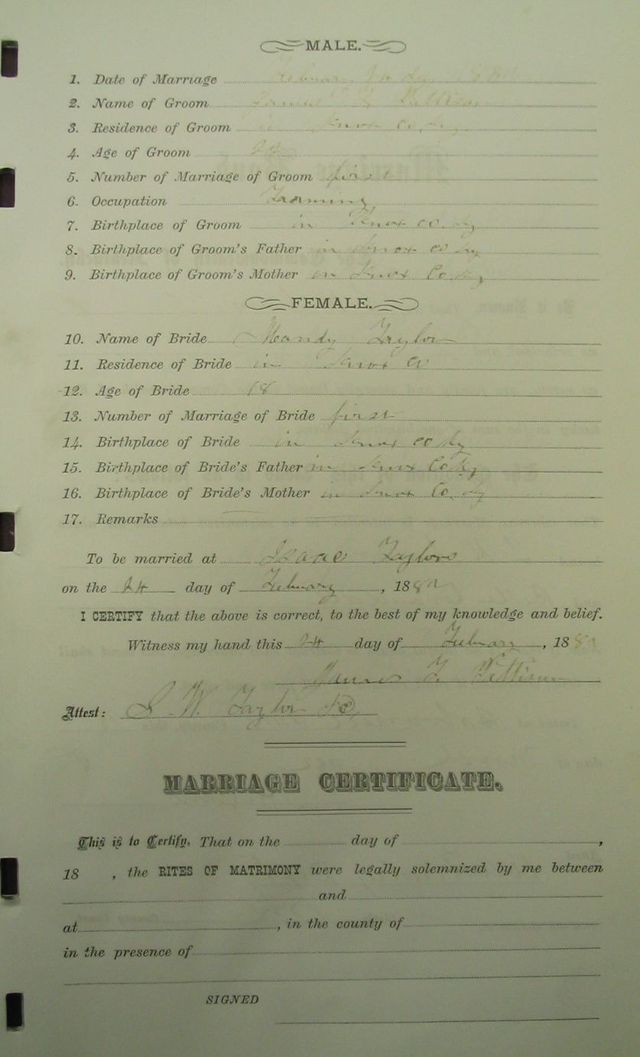 MALE.
1. Date of Marriage
2. Name of Groom
3. Residence of Groom in Knox Co. Ky
4. Age of Groom 24
5. Number of Marriage of Groom first
6. Occupation Farming
7. Birthplace of Groom in Knox co. Ky
8. Birthplace of Groom's Father in Knox co Ky
9. Birthplace of Groom's Mother in Knox Co. Ky
FEMALE.
10. Name of Bride Mandy Taylor
11. Residence of Bride in Knox Co
12. Age of Bride 18
13. Number of Marriage of Bride first
14. Birthplace of Bride in Knox co Ky
15. Birthplace of Bride's Father in Knox Co. Ky
16. Birthplace of Bride's Mother in Knox Co. Ky
17. Remarks
To be married at Isaac Taylors
on the 24 day of February, 188
I CERTIFY that the above is correct, to the best of my knowledge and belief.
Witness my hand this 24 day of February, 188
James F.
Attest: S. W. Taylor
MARRIAGE CERTIFICATE.
This is to Certify, That on the day of ,
18 , the RITES OF MATRIMONY were legally solemnized by me between
and
at , in the county of
in the presence of
SIGNED